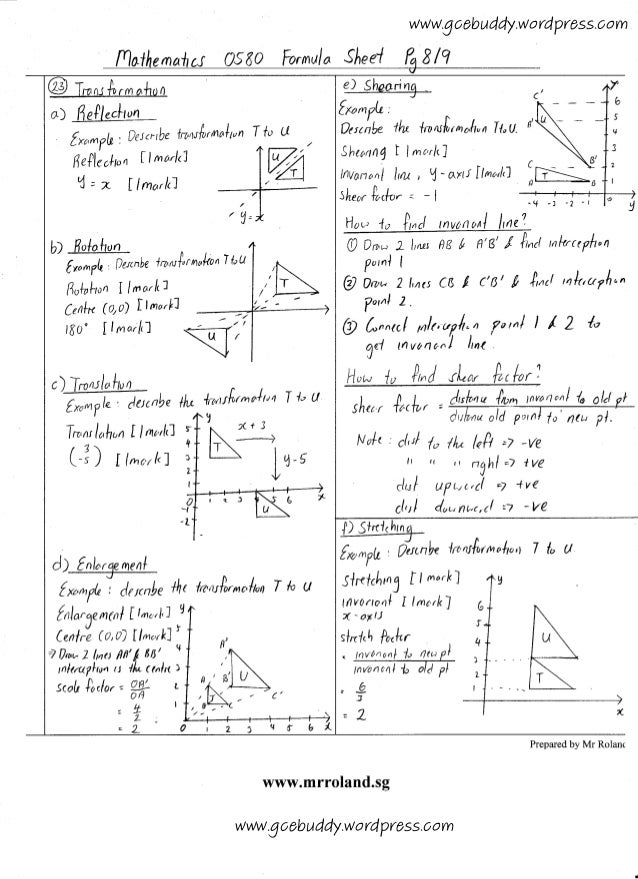 www.gcebuddy.wordpress.com
Mathematics 0580 Formula Sheet Pg 8/9
(23) Transformation
a) Reflection
Example : Describe transformation T to U
Reflection [1 mark]
y = x [1 mark]
U
T
y = x
b) Rotation
Example : Describe transformation T to U
Rotation [1 mark]
Centre (0,0) [1 mark]
180° [1 mark]
T
U
c) Translation
Example : describe the transformation T to U
Translation [1 mark]
(3
-5) [1 mark]
y
x + 3
y - 5
5
4
3
2
1
0
-1
-2
1 2 3 4 5 6 x
T
U
d) Enlargement
Example : describe the transformation T to U
Enlargement [1 mark]
Centre (0,0) [1 mark]
→ Draw 2 lines AA' & BB'
interception is the centre
scale factor = OA'/OA
= 4/2
= 2
y
5
4
3
2
1
0 1 2 3 4 5 6 x
A'
B' U C'
A
B T C
e) Shearing
Example :
Describe the transformation T to U.
Shearing [1 mark]
invariant line, y-axis [1 mark]
shear factor = -1
C'
A' U
B'
C
A T B
6
5
4
3
2
1
0
-4 -3 -2 -1 y
How to find invariant line?
① Draw 2 lines AB & A'B' & find interception
point 1
② Draw 2 lines CB & C'B' & find interception
point 2.
③ Connect interception point 1 & 2 to
get invariant line.
How to find shear factor?
shear factor = distance from invariant to old pt
distance old point to new pt.
Note : dist to the left => -ve
" " " right => +ve
dist upward => +ve
dist downward => -ve
f) Stretching
Example : Describe transformation T to U
stretching [1 mark]
invariant [1 mark]
x-axis
stretch factor
= invariant to new pt
invariant to old pt
= 6/3
= 2
y
6
5
4
3
2
1
U
T
x
Prepared by Mr Roland
www.mrroland.sg
www.gcebuddy.wordpress.com